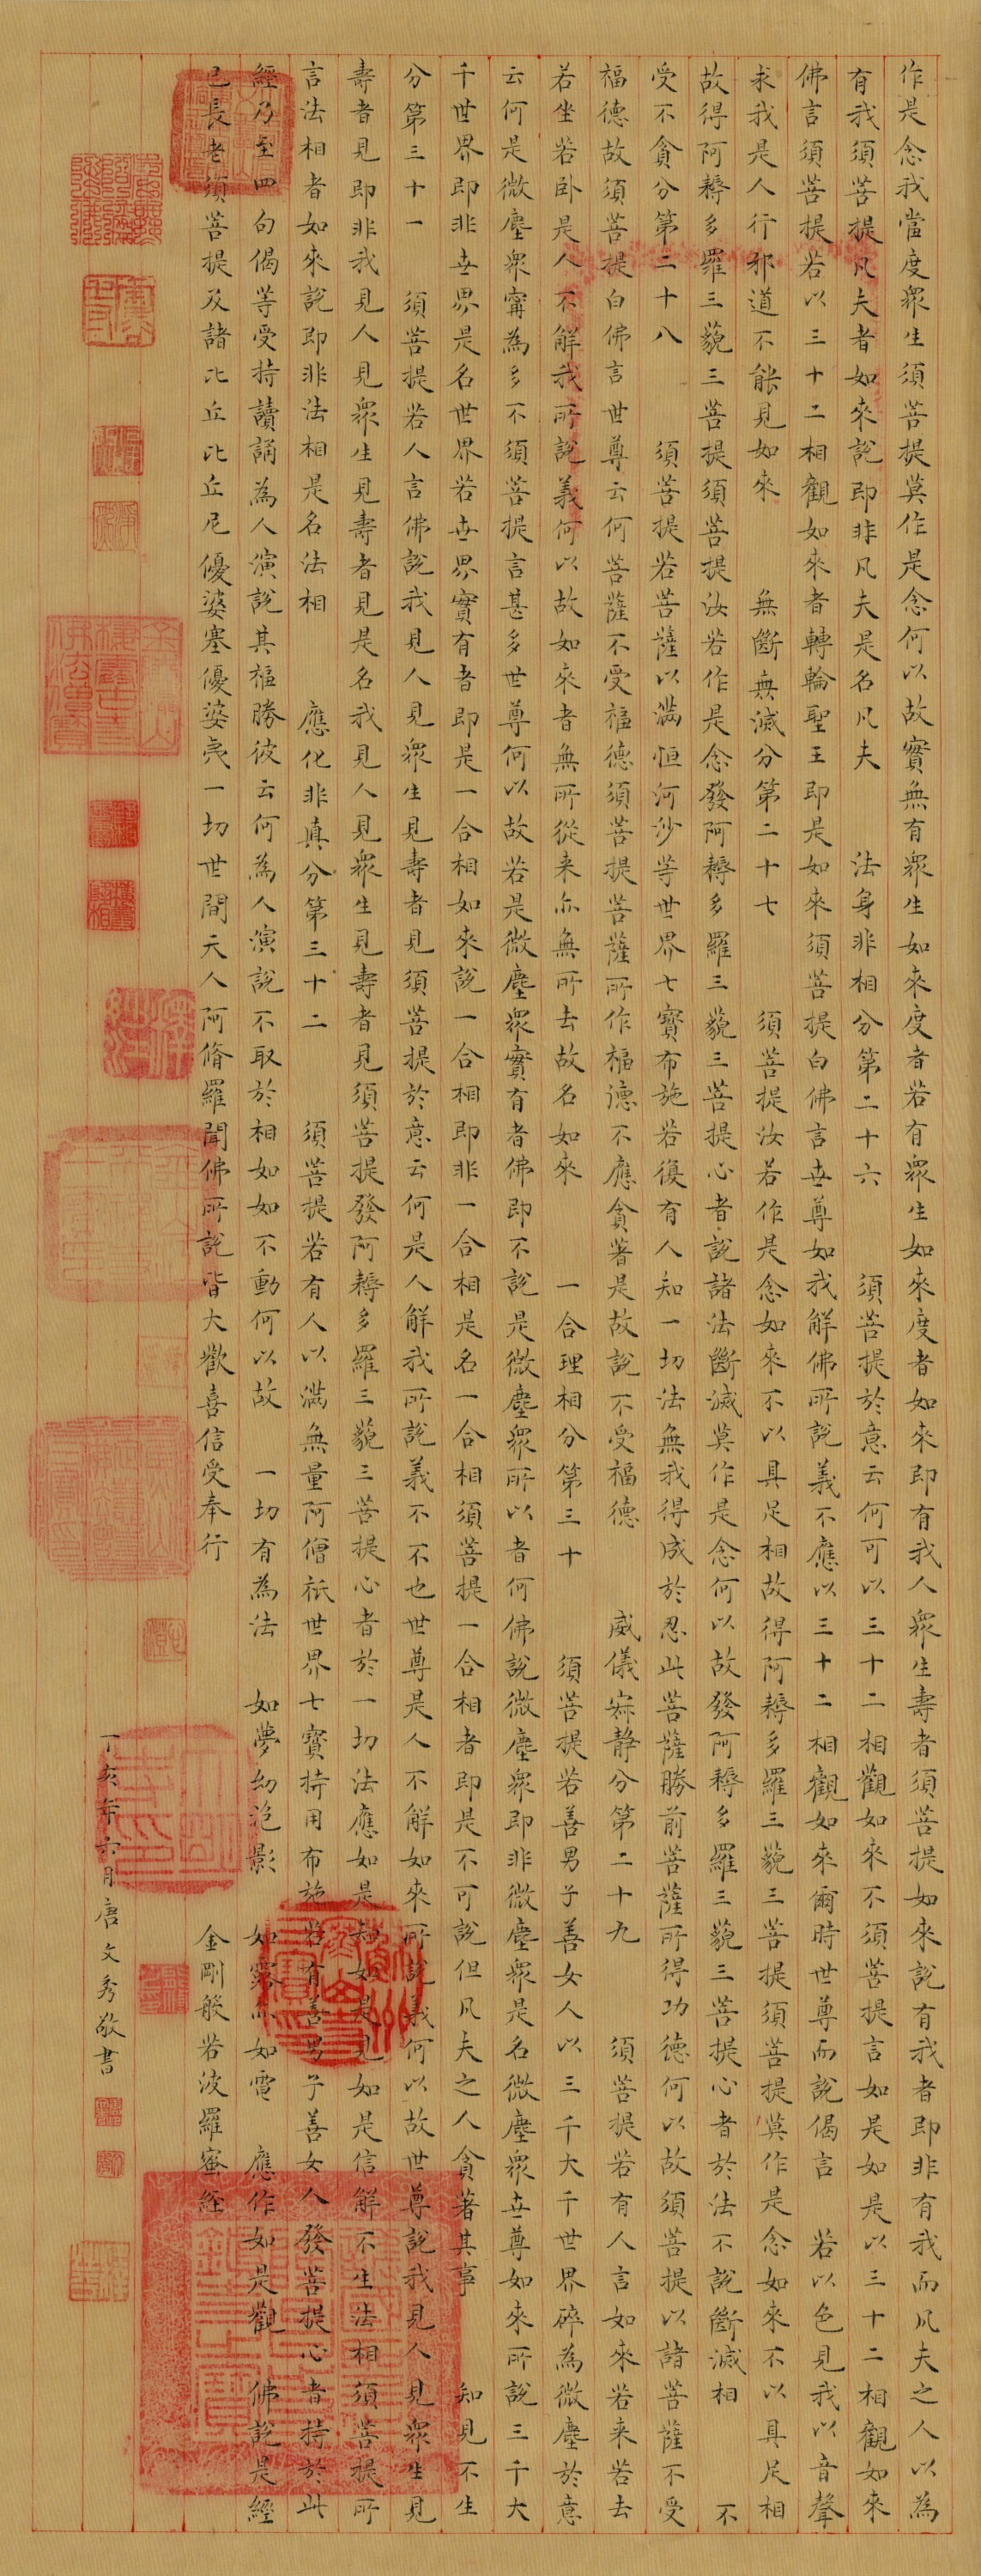 作是念我當度眾生須菩提莫作是念何以故實無有眾生如來度者若有眾生如來度者如來即有我人眾生壽者須菩提如來說有我者即非有我而凡夫之人以為
有我須菩提凡夫者如來說即非凡夫是名凡夫　法身非相分第二十六　須菩提於意云何可以三十二相觀如來不須菩提言如是如是以三十二相觀如來
佛言須菩提若以三十二相觀如來者轉輪聖王即是如來須菩提白佛言世尊如我解佛所說義不應以三十二相觀如來爾時世尊而說偈言　若以色見我以音聲
求我是人行邪道不能見如來　無斷無滅分第二十七　須菩提汝若作是念如來不以具足相故得阿耨多羅三藐三菩提須菩提莫作是念如來不以具足相
故得阿耨多羅三藐三菩提須菩提汝若作是念發阿耨多羅三藐三菩提心者說諸法斷滅莫作是念何以故發阿耨多羅三藐三菩提心者於法不說斷滅相　不
受不貪分第二十八　須菩提若菩薩以滿恒河沙等世界七寶布施若復有人知一切法無我得成於忍此菩薩勝前菩薩所得功德何以故須菩提以諸菩薩不受
福德故須菩提白佛言世尊云何菩薩不受福德須菩提菩薩所作福德不應貪著是故說不受福德　威儀寂靜分第二十九　須菩提若有人言如來若来若去
若坐若卧是人不解我所說義何以故如來者無所從来亦無所去故名如來　一合理相分第三十　須菩提若善男子善女人以三千大千世界碎為微塵於意
云何是微塵眾甯為多不須菩提言甚多世尊何以故若是微塵眾實有者佛即不說是微塵眾所以者何佛說微塵眾即非微塵眾是名微塵眾世尊如來所說三千大
千世界即非世界是名世界若世界實有者即是一合相如來說一合相即非一合相是名一合相須菩提一合相者即是不可說但凡夫之人貪著其事　知見不生
分第三十一　須菩提若人言佛說我見人見眾生見壽者見須菩提於意云何是人解我所說義不不也世尊是人不解如來所說義何以故世尊說我見人見眾生見
壽者見即非我見人見眾生見壽者見是名我見人見眾生見壽者見須菩提發阿耨多羅三藐三菩提心者於一切法應如是知如是見如是信解不生法相須菩提所
言法相者如來說即非法相是名法相　應化非真分第三十二　須菩提若有人以滿無量阿僧祇世界七寶持用布施若有善男子善女人發菩提心者持於此
經乃至四句偈等受持讀誦為人演說其福勝彼云何為人演說不取於相如如不動何以故　一切有為法　如夢幻泡影　如露亦如電　應作如是觀　佛說是經
已長老須菩提及諸比丘比丘尼優婆塞優婆夷一切世間天人阿脩羅聞佛所說皆大歡喜信受奉行　金剛般若波羅蜜經
丁亥年六月唐文秀敬書